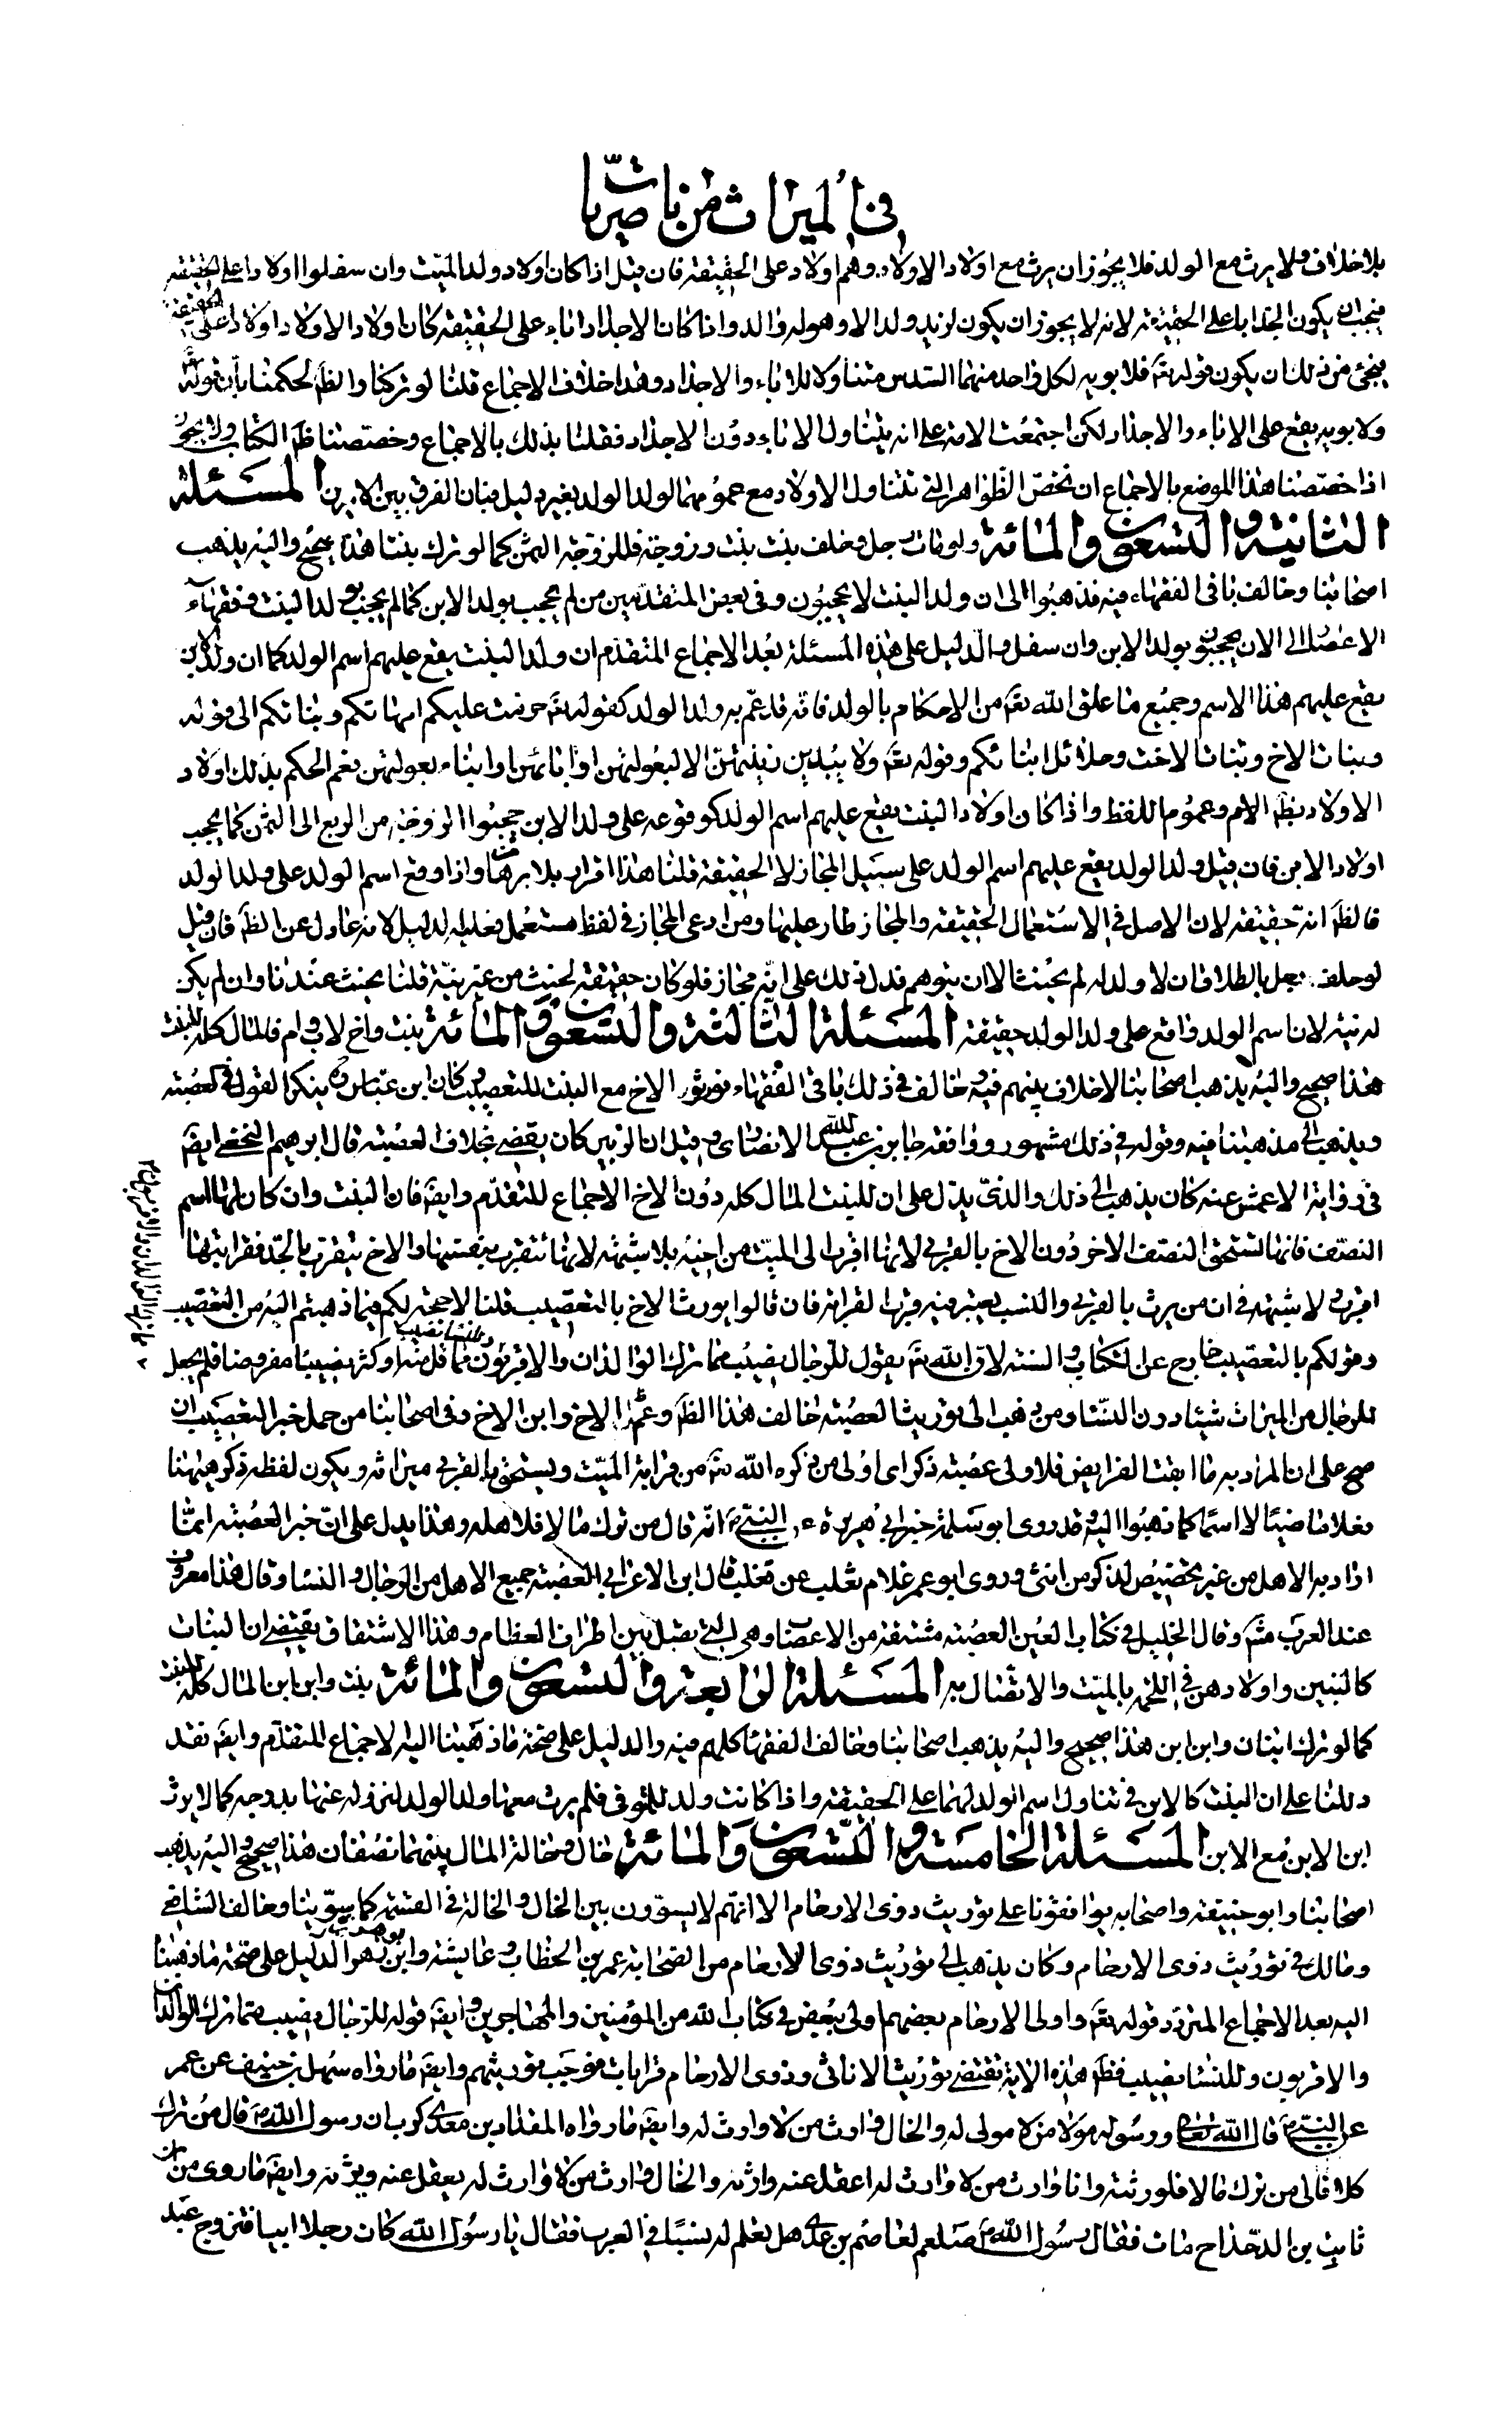 في الميراث من ناصريات
بلا خلاف ولا يرث مع الولد فلا يجوز ان يرث مع اولاد الاولاد وهم اولاد على الحقيقة فان قيل اذا كان اولاد ولد الميت وان سفلوا اولادا على الحقيقة
فيجب ان يكون الجد ابا على الحقيقة لانه لا يجوز ان يكون لزيد ولد الا وهو له والد واذا كان الاجداد اباء على الحقيقة كان اولاد الاولاد اولادا على الحقيقة
فيجئ من ذلك ان يكون قوله تعم فلابويه لكل واحد منهما السدس متناولا للاباء والاجداد وهذا خلاف الاجماع قلنا لو تركنا والظم لحكمنا بان قوله تعم
ولابويه يقع على الاباء والاجداد لكن اجتمعت الامة على انه يتناول الاباء دون الاجداد فقلنا بذلك بالاجماع وخصصنا ظم الكتاب ولا يجوز
اذا خصصنا هذا الموضع بالاجماع ان نخص الظواهر التي تتناول الاولاد مع عمومها لولد الولد بغير دليل فبان الفرق بين الامرين المسئلة
الثانية والتسعون والمائة ولو مات رجل وخلف بنت بنت وزوجة فللزوجة الثمن كما لو ترك بنتا هذا صحيح واليه يذهب
اصحابنا وخالف باقى الفقهاء فيه فذهبوا الى ان ولد البنت لا يحجبون وفى بعض المتقدمين من لم يحجب بولد الابن كما لم يحجب بولد البنت وفقهاء
الاعصار الى الان يحجبون بولد الابن وان سفل والدليل على هذه المسئلة بعد الاجماع المتقدم ان ولد البنت يقع عليهم اسم الولد كما ان ولد الابن
يقع عليهم هذا الاسم وجميع ما علق الله تعم من الاحكام بالولد فانه قد عم به ولد الولد كقوله تعم حرمت عليكم امهاتكم وبناتكم الى قوله
وبنات الاخ وبنات الاخت وحلائل ابنائكم وقوله تعم ولا يبدين زينتهن الا لبعولتهن او ابائهن او ابناء بعولتهن فعم الحكم بذلك اولاد
الاولاد بظم الام وعموم اللفظ واذا كان اولاد البنت يقع عليهم اسم الولد كوقوعه على ولد الابن حجبوا الزوجة من الربع الى الثمن كما يحجب
اولاد الابن فان قيل ولد الولد يقع عليهم اسم الولد على سبيل المجاز لا الحقيقة قلنا هذا اقرار بلا برهان واذا وقع اسم الولد على ولد الولد
فالظم انه حقيقة لان الاصل في الاستعمال الحقيقة والمجاز طار عليها ومن ادعى المجاز في لفظ مستعمل فعليه الدليل لانه عادل عن الظم فان قيل
لو حلف رجل بالطلاق ان لا ولد له لم يحنث الا ان ينويهم فدل ذلك على انه مجاز فلو كان حقيقة لحنث من غير نية قلنا يحنث عندنا وان لم يكن
له نية لان اسم الولد واقع على ولد الولد حقيقة المسئلة الثالثة والتسعون والمائة بنت واخ لاب وام فالمال كله للبنت
هذا صحيح واليه يذهب اصحابنا لا خلاف بينهم فيه وخالف في ذلك باقى الفقهاء فورثوا الاخ مع البنت للتعصيب وكان ابن عباس ره ينكر القول في لعصبة
ويذهب الى مذهبنا فيه وقوله في ذلك مشهور ووافقه جابر بن عبد الله الانصارى وقيل ان الزبير كان يقضى بخلاف العصبة قال ابراهيم النخعى ايضا
في رواية الاعمش عنه كان يذهب الى ذلك والذى يدل على ان للبنت المال كله دون الاخ الاجماع المتقدم وايضم فان البنت وان كان لها اسم
النصف فانها تستحق النصف الاخر دون الاخ بالقربى لانها اقرب الى الميت من اخيه بلا شبهة لانها تتقرب بنفسها والاخ يتقرب بالجد فقرابتها
اقرب ولا شبهة في ان من يرث بالقربى والنسب يعتبر فيه قرب القرابة فان قالوا يورث الاخ بالتعصيب قلنا لا حجة لكم فيما ذهبتم اليه من التعصيب
وقولكم بالتعصيب خارج عن الكتاب والسنة لان الله تعم يقول للرجال نصيب مما ترك الوالدان والاقربون وللنساء نصيب مما قل منه او كثر نصيبا مفروضا فلم يجعل
للرجال من الميراث شيئا دون النساء ومن ذهب الى توريث العصبة خالف هذا الظم وعم الاخ وابن الاخ وفى اصحابنا من حمل خبر التعصيب ان
صح على ان المراد به ما ابقت الفرايض فلاولى عصبة ذكر اى اولى من ذكره الله تعم من قرابة الميت ويستحق بالقربى ميراثه ويكون لفظه ذكر هيهنا
فعلا ماضيا لا اسما كما ذهبوا اليه وقد روى ابو سلمة خبر ابى هريرة عن النبي ص انه قال من ترك مالا فلاهله وهذا يدل على ان خبر العصبة انما
اراد به الاهل من غير تخصيص لذكر من انثى وروى ابو عمر غلام ثعلب عن ثعلب قال ابن الاعرابى العصبة جميع الاهل من الرجال والنساء وقال هذا معروف
عند العرب مشم وقال الخليل في كتاب العين العصبة مشتقة من الاعصاب وهى التي يصل بين اطراف العظام وهذا الاشتقاق يقتضى ان البنات
كالبنين واولادهن في اللحم بالميت والاتصال به المسئلة الرابعة والتسعون والمائة بنت وابن ابن المال كله للبنت
كما لو ترك ابنان وابن ابن هذا صحيح واليه يذهب اصحابنا وخالف الفقهاء كلهم فيه والدليل على صحة ما ذهبنا اليه الاجماع المتقدم وايضم فقد
دللنا على ان البنت كالابن في تناول اسم الولد لهما على الحقيقة واذا كانت ولد للمتوفى فلم يرث معها ولد الولد لنزوله عنها بدرجه كما لا يرث
ابن الابن مع الابن المسئلة الخامسة والتسعون والمائة خال وخالة المال بينهما نصفان هذا صحيح واليه يذهب
اصحابنا وابو حنيفة واصحابه يوافقونا على توريث ذوى الارحام الا انهم لا يسوون بين الخال والخالة في القسمة كما سوينا وخالف الشافعى
ومالك في توريث ذوى الارحام وكان يذهب الى توريث ذوى الارحام من الصحابة عمر بن الخطاب وعايشة وابن الدليل على صحة ما ذهبنا
اليه بعد الاجماع المتردد قوله تعم واولى الارحام بعضهم اولى ببعض في كتاب الله من المؤمنين والمهاجرين وايضم قوله للرجال نصيب مما ترك الوالدان
والاقربون وللنساء نصيب فظم هذه الاية تقتضى توريث الاناث وذوى الارحام قرابات فوجب توريثهم وايضم ما رواه سهل بن حنيف عن عمر
عن النبي ص قال الله تعالى ورسوله مولا من لا مولى له والخال وارث من لا وارث له وايضم ما رواه المقداد بن معدى كرب ان رسول الله ص قال من ترك
كلا فالى من ترك مالا فلورثته وانا وارث من لا وارث له اعقل عنه وارثه والخال وارث من لا وارث له يعقل عنه ويرثه وايضم ما روى من ان
ثابت بن الدحداح مات فقال رسول الله ص صلعم لعاصم بن عدى هل تعلم له نسبا في العرب فقال يا رسول الله كان رجلا ابيا فتزوج عبد